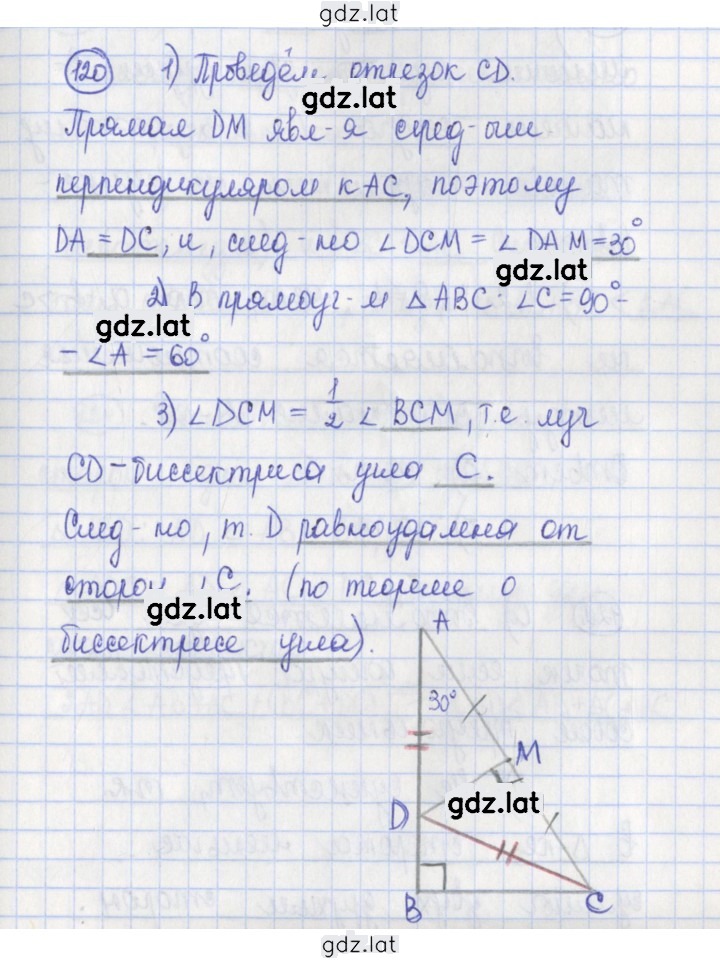 gdz.lat
120 1) Проведём отрезок CD.
gdz.lat
Прямая DM явл-я серед-ым
перпендикуляром к AC, поэтому
DA = DC, и, след-но ∠DCM = ∠DAM = 30°
gdz.lat
2) В прямоуг-м △ABC: ∠C = 90° -
gdz.lat
- ∠A = 60°
3) ∠DCM = 1/2 ∠ BCM, т.е. луч
CD - биссектриса угла C.
След-но, т. D равноудалена от
сторон C. (по теореме о
gdz.lat
биссектрисе угла).
A
30°
M
gdz.lat
D
B C
gdz.lat